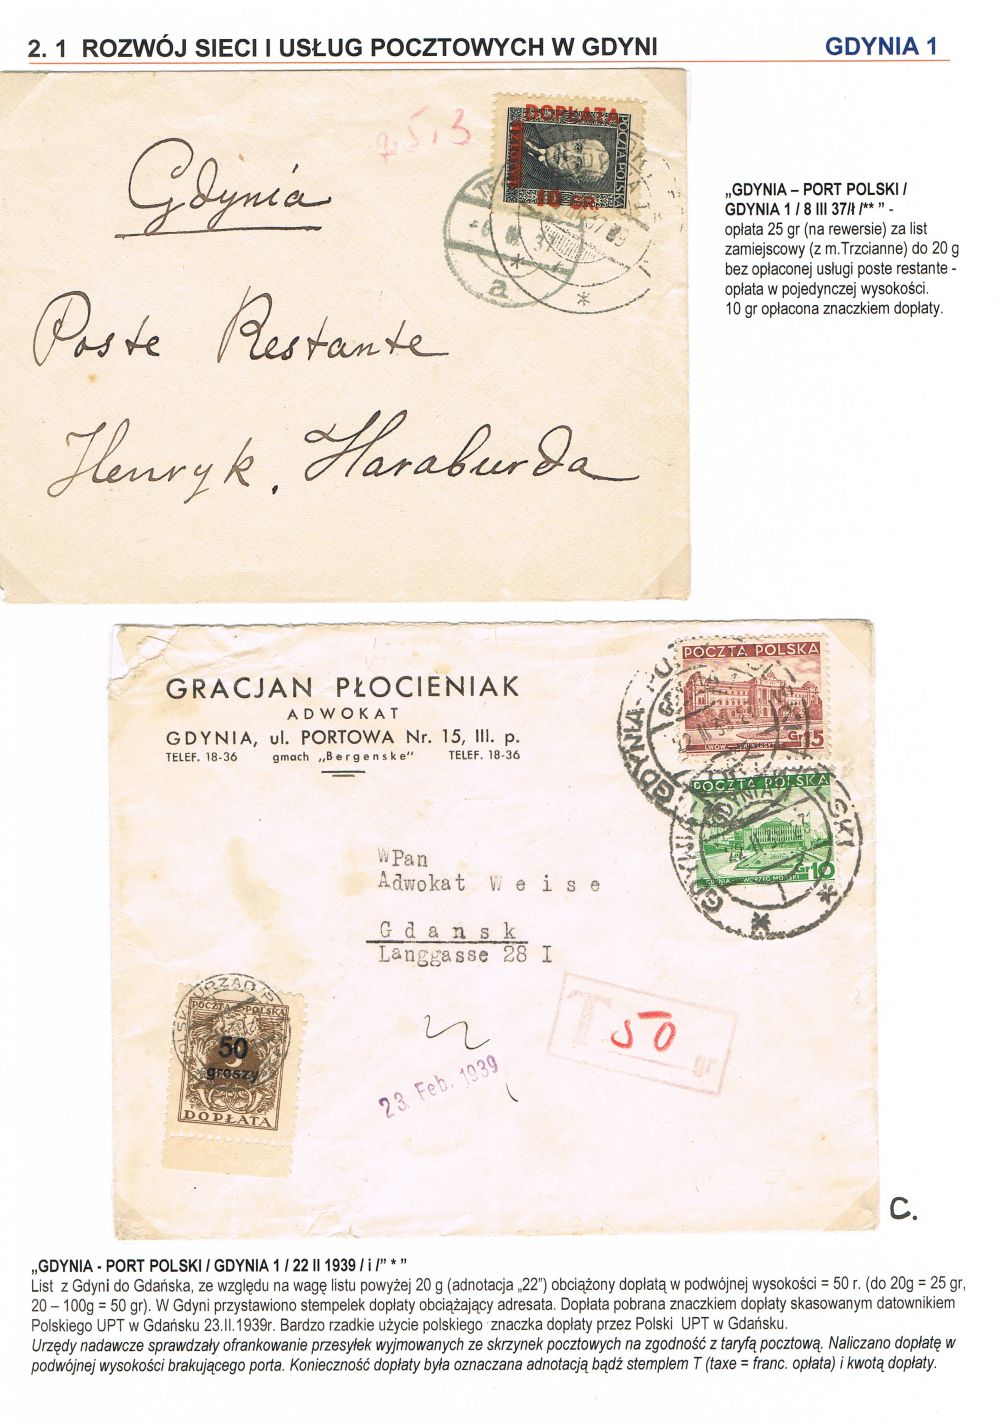 2. 1 ROZWÓJ SIECI I USŁUG POCZTOWYCH W GDYNI GDYNIA 1
25,3
DOPŁATA
POCZTA POLSKA
10 GR.
-6 III 37
a
Gdynia
Poste Restante
Henryk. Haraburda
„GDYNIA – PORT POLSKI /
GDYNIA 1 / 8 III 37/ł /** ” -
opłata 25 gr (na rewersie) za list
zamiejscowy (z m.Trzcianne) do 20 g
bez opłaconej usługi poste restante -
opłata w pojedynczej wysokości.
10 gr opłacona znaczkiem dopłaty.
GRACJAN PŁOCIENIAK
ADWOKAT
GDYNIA, ul. PORTOWA Nr. 15, III. p.
TELEF. 18-36 gmach „Bergenske" TELEF. 18-36
POCZTA POLSKA
LWÓW - UNIWERSYTET
Gr15
POCZTA POLSKA
GDYNIA - DWORZEC MORSKI
Gr10
GDYNIA
WPan
Adwokat Weise
Gdansk
Langgasse 28 I
POCZTA POLSKA
50
groszy
DOPŁATA
T 50 gr
22
23. Feb. 1939
C.
„GDYNIA - PORT POLSKI / GDYNIA 1 / 22 II 1939 / i /” * ”
List z Gdyni do Gdańska, ze względu na wagę listu powyżej 20 g (adnotacja „22”) obciążony dopłatą w podwójnej wysokości = 50 r. (do 20g = 25 gr,
20 – 100g = 50 gr). W Gdyni przystawiono stempelek dopłaty obciążający adresata. Dopłata pobrana znaczkiem dopłaty skasowanym datownikiem
Polskiego UPT w Gdańsku 23.II.1939r. Bardzo rzadkie użycie polskiego znaczka dopłaty przez Polski UPT w Gdańsku.
Urzędy nadawcze sprawdzały ofrankowanie przesyłek wyjmowanych ze skrzynek pocztowych na zgodność z taryfą pocztową. Naliczano dopłatę w
podwójnej wysokości brakującego porta. Konieczność dopłaty była oznaczana adnotacją bądź stemplem T (taxe = franc. opłata) i kwotą dopłaty.